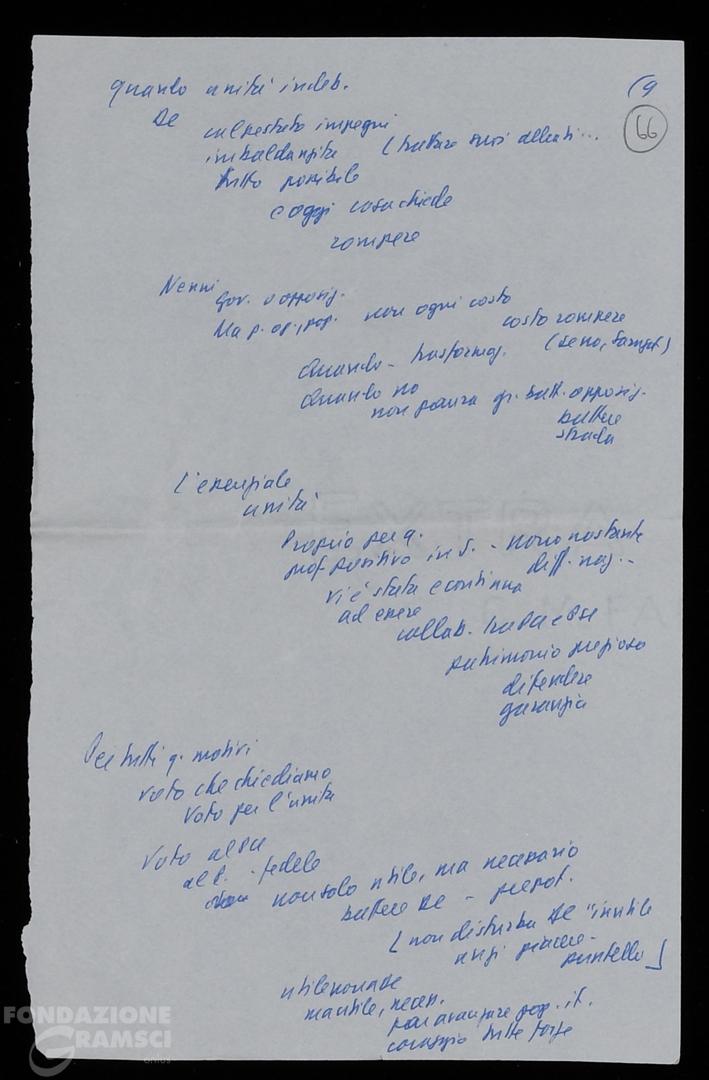 quando unità indeb.
(9
66
DC
calpestato impegni
imbaldanzita (trattare suoi alleati...
tutto possibile
e oggi cosa chiede
rompere
Nenni
Gov. o opposiz.
Ma p. op., pop. non ogni costo
costo rompere
Quando – trasformaz.
Quando no
non paura gr. batt. opposiz.
battere
strada
L'essenziale
unità
Proprio per q.
positivo in S. – nonostante
diff. naz. –
vi è stata e continua
ad essere
collab. tra PCI e PSI
patrimonio prezioso
difendere
garanzia
Per tutti q. motivi
voto che chiediamo
voto per l'unità
Voto al PCI
al P. fedele
non solo utile, ma necessario
battere DC – prepot.
[non disturba DC "inutile
anzi piacere –
puntello]
utile non a DC
ma utile, necess.
avanzare pop. it.
coraggio tutte forze
FONDAZIONE
GRAMSCI
onlus